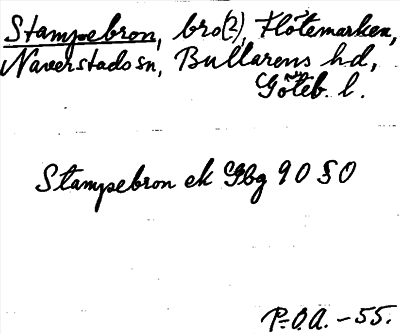 Stampebron, bro(2), Flötemarken,
Naverstads sn, Bullarens hd,
Göteb. l.
Stampebron ek Gbg 9 0 S 0
P-O.A. -55.